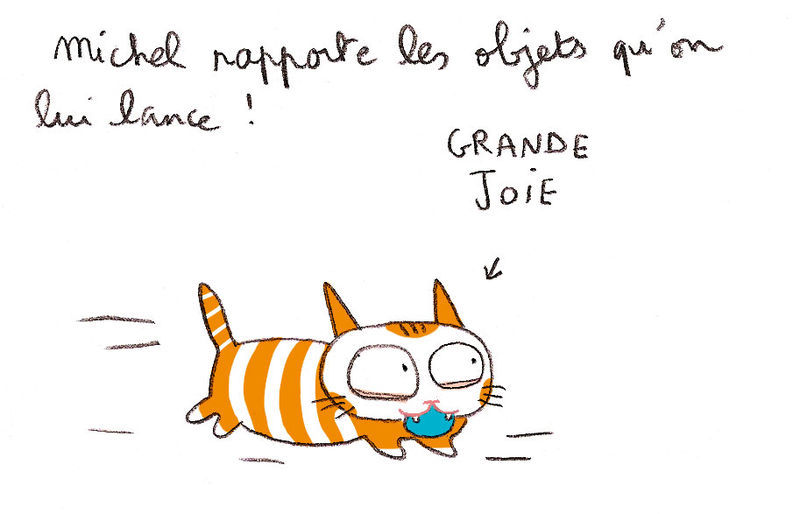 Michel rapporte les objets qu'on
lui lance !
GRANDE
JOiE